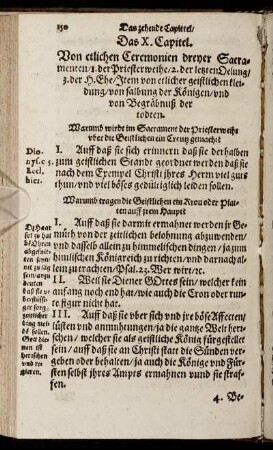 150 Das zehende Capittel/
Das X. Capitel.
Von etlichen Ceremonien dreyer Sacra-
menten/1. der Priesterweihe/2. der letzten Oelung/
3. der H. Ehe/Item von etlicher geistlichen klei-
dung/von salbung der Königen/und
von Begräbnuß der
todten.
Warumb wirdt im Sacrament der Priesterweihs
vber die Geistlichen ein Creutz gemacht
Dio-
nys. c. 5.
Eccl.
hier.
I. Auff daß sie sich erinnern daß sie derhalben
zum geistlichen Stande geordnet werden daß sie
nach dem Exempel Christi ihres Herrn viel guts
thun/und viel böses gedültiglich leiden sollen.
Warumb tragen die Geistlichen ein Kron oder Plat-
ten auff jrem Haupt
I. Auff daß sie darmit ermahnet werden jr Ge-
müth von der zeitlichen belohnung abzuwenden/
und dasselb allein zu himmelischen dingen/ja zum
himlischen Königreich zu richten/und darnach al-
lein zu trachten/Psal. 23. Wer wirs/rc.
I. Weil sie Diener GOttes sein/welcher kein
anfang noch end hat/wie auch die Cron oder run-
te figur nicht hat.
III. Auff daß sie vber sich und jre böse Affecten/
lüsten und anmuhungen/ja die gantze Welt herr-
schen/welcher sie als geistliche König fürgestellet
sein/auff daß sie an Christi statt die Sünden ver-
geben oder behalten/ja auch die Könige und Für-
sten selbst ihres Ampts ermahnen vund sie straf-
fen.
nen ist
herrschen
und re-
gieren.
4. We-